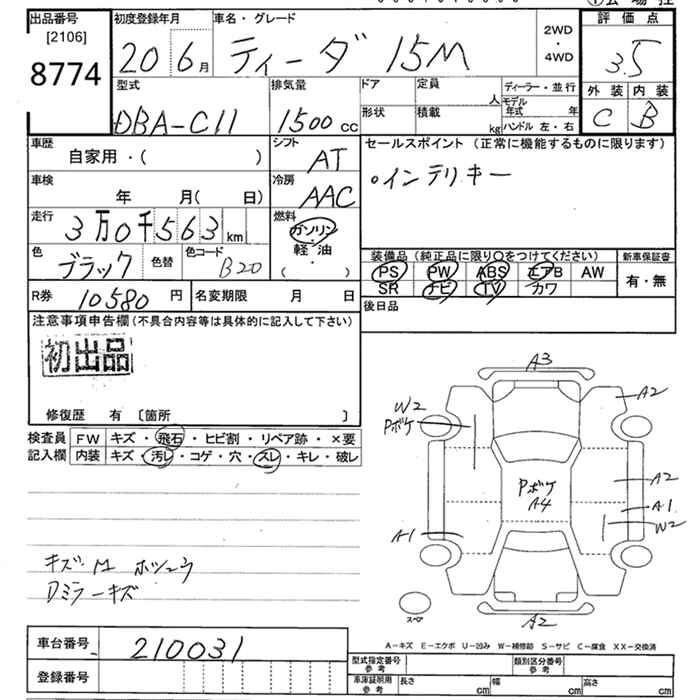 出品番号
[2106]
8774
初度登録年月
20 6月
車名・グレード
ティーダ 15M
2WD
・
4WD
評価点
3.5
外装 内装
C B
型式
DBA-C11
排気量
1500cc
ドア
形状
定員
人
積載
kg
ディーラー・並行
モデル年式 年
ハンドル 左・右
車歴
自家用・( )
シフト
AT
車検
年 月( 日)
冷房
AAC
走行
3万0千563km
燃料
ガソリン
・
軽・油
( )
色
ブラック
色替
色コード
B20
R券 10580円
名変期限 月 日
セールスポイント (正常に機能するものに限ります)
○インテリキー
装備品(純正品に限り○をつけてください)
PS PW ABS エアB AW
SR ナビ TV カワ
新車保証書
有・無
後日品
注意事項申告欄(不具合内容等は具体的に記入して下さい)
初出品
修復歴 有 [箇所 ]
検査員記入欄
FW キズ・飛石・ヒビ割・リペア跡・×要
内装 キズ・汚レ・コゲ・穴・スレ・キレ・破レ
キズ M ホツユウ
Dミラーキズ
A3
A2
W2
Pボケ
Pボケ
A4
A2
A1
W2
A1
A2
スペア
A−キズ E−エクボ U−凹み W−補修跡 S−サビ C−腐食 XX−交換済
車台番号 210031
登録番号
型式指定番号
参考
類別区分番号
参考
車庫証明用
参考
長さ cm
幅 cm
高さ cm